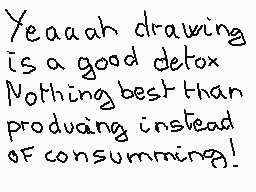 Yeaaah drawing
is a good detox
Nothing best than
producing instead
of consumming!